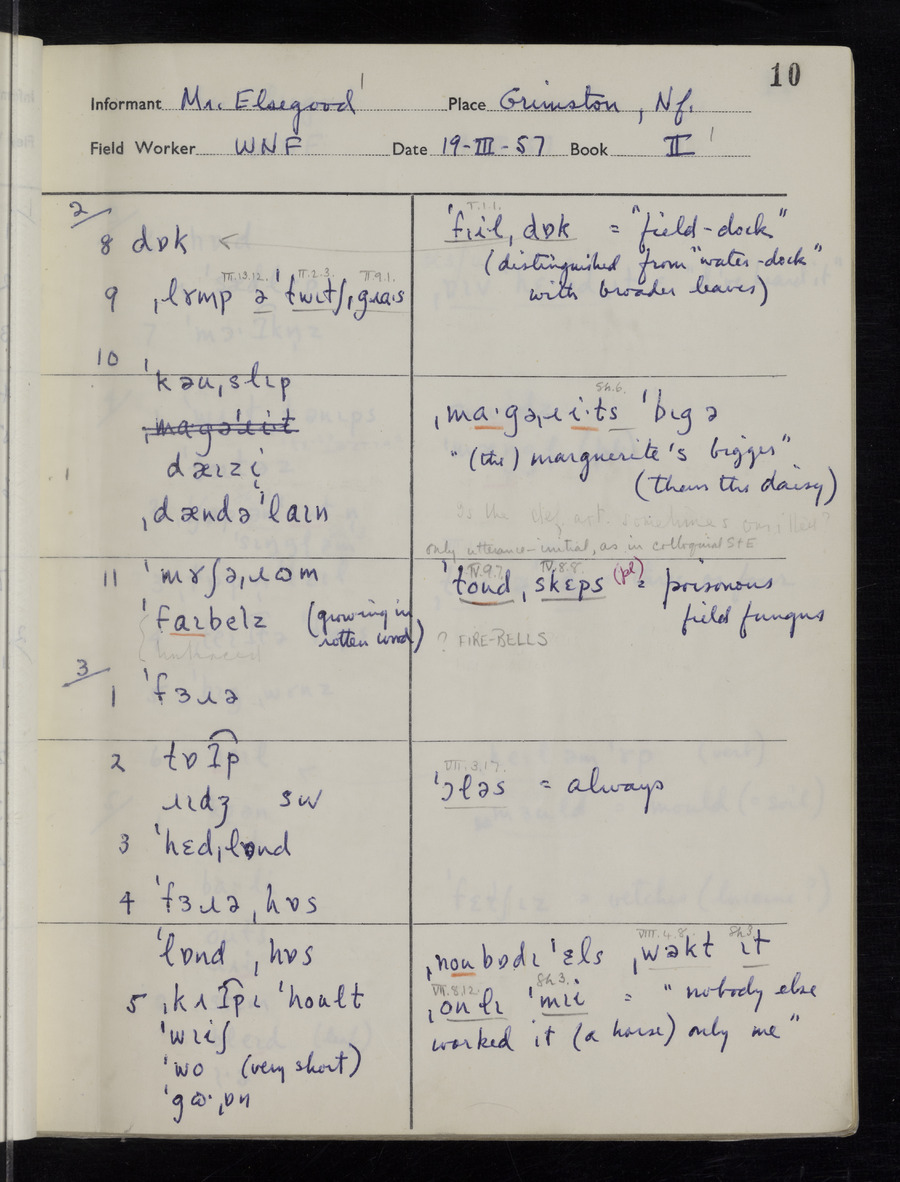 10
Informant Mr. Elsegood Place Grimston, Nf.
Field Worker WNF Date 19-III-57 Book II
2
8 dɒk
ˈfɪiˑl, dɒk = "field-dock"
(distinguished from "water-dock"
with broader leaves)
III.13.12. II.2.3. II.9.1.
9 ˌlɤmp ə ˈtwɪtʃˌgɹɑːs
10
ˈkəuˌslɪp
dæɪzi
ˌdændəˈlaɪn
Sh.6.
ˌmaˑgəˌɹiˑts ˈbɪgə
"(the) marguerite's bigger"
(than the daisy)
Is the def. art. sometimes omitted?
only utterance-initial, as in colloquial StE
11 ˈmɤʃəˌɹʊm
ˈfaɪbelz (growing in
rotten wood)
IV.9.7. IV.8.8.
ˈtoudˌskɛps (pl) = poisonous
field fungus
? FIRE-BELLS
3
1 ˈfɜɹə
2 tɒʔp
ɹɪdʒ sw
VII.3.17.
ˈɔləs = always
3 ˈhɛdˌlɒnd
4 ˈfɜɹəˌhɒs
ˈlɒndˌhɒs
5 ˌkɹʔpɪ ˈhoult
ˈwɪiʃ
ˈwo (very short)
VIII.4.8. Sh.3.
ˌnoubɒdɪ ˈɛls ˌwəkt ɪt
VII.8.12. Sh.3.
ˌonlɪ ˈmɪi = "nobody else
worked it (a horse) only me"